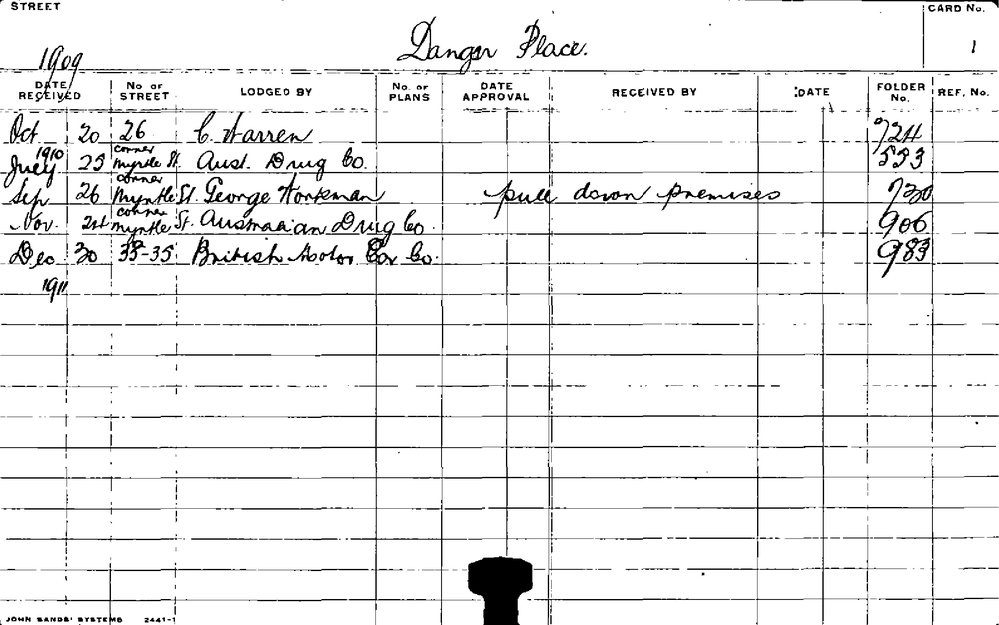 STREET
CARD No.
Dangar Place.
1
1909
DATE RECEIVED No of STREET LODGED BY No. of PLANS DATE APPROVAL RECEIVED BY DATE FOLDER No. REF. No.
Oct 20 26 C. Warren 724
1910 corner
July 25 Myrtle St. Aust. Drug Co. 533
corner
Sep 26 Myrtle St. George Workman pull down premises 730
corner
Nov. 24 Myrtle St. Australian Drug Co. 906
Dec 30 33-35 British Motor Car Co. 983
1911
JOHN SANDS' SYSTEMS 2441-1